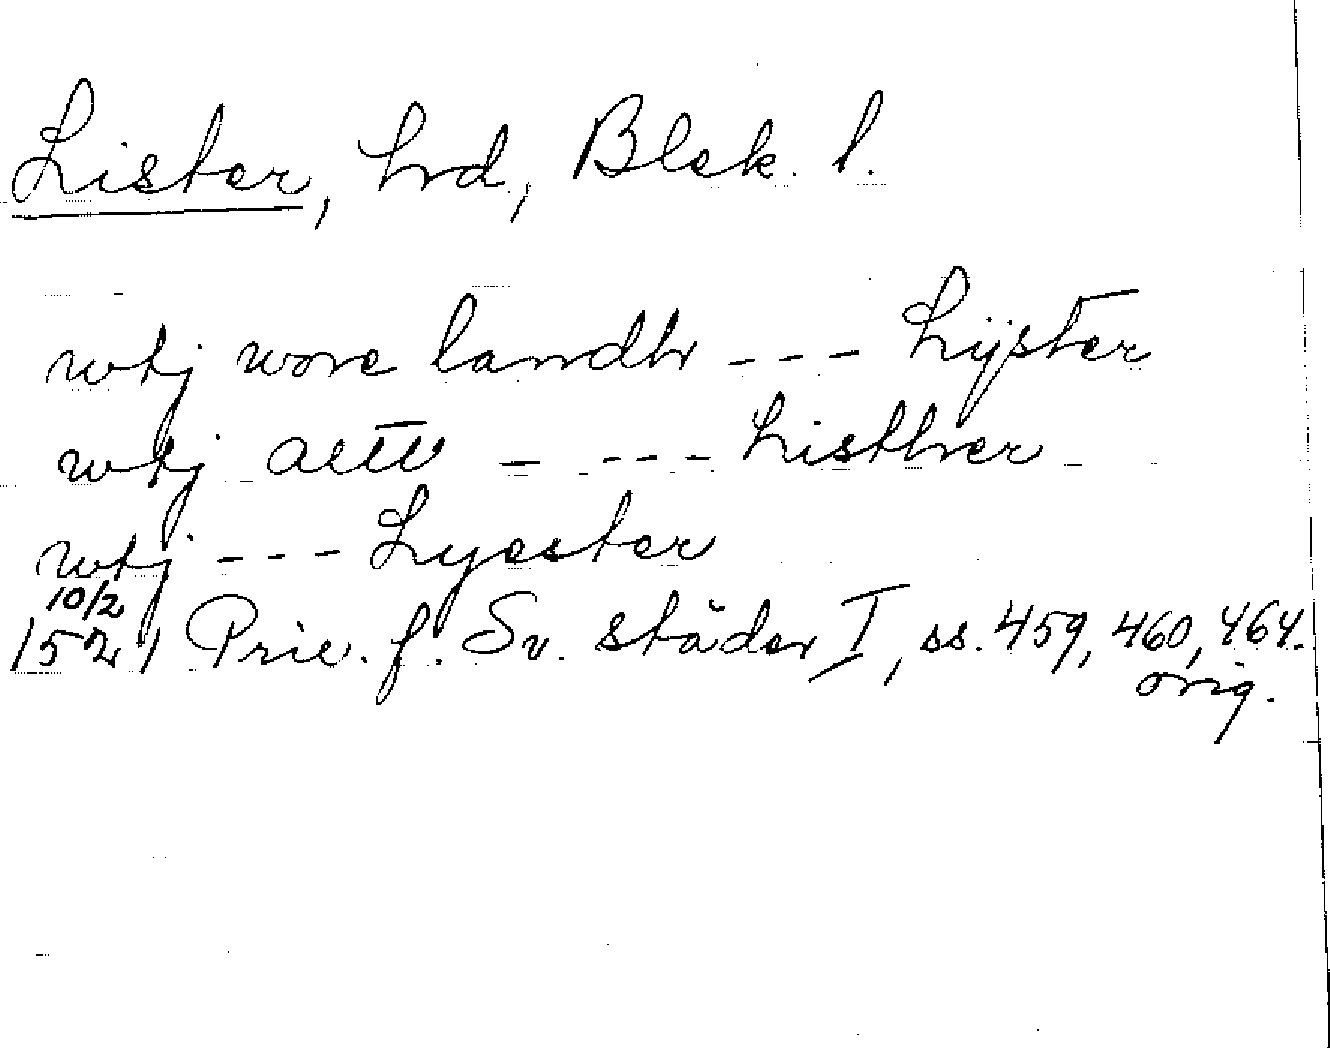 Lister, hd, Blek. l.
wtj wore landh --- Lÿster
wtj aettt ---- Listher
wtj --- Lyester
10/2
1521 Priv. f. Sv. städer I, ss. 459, 460, 464.
orig.